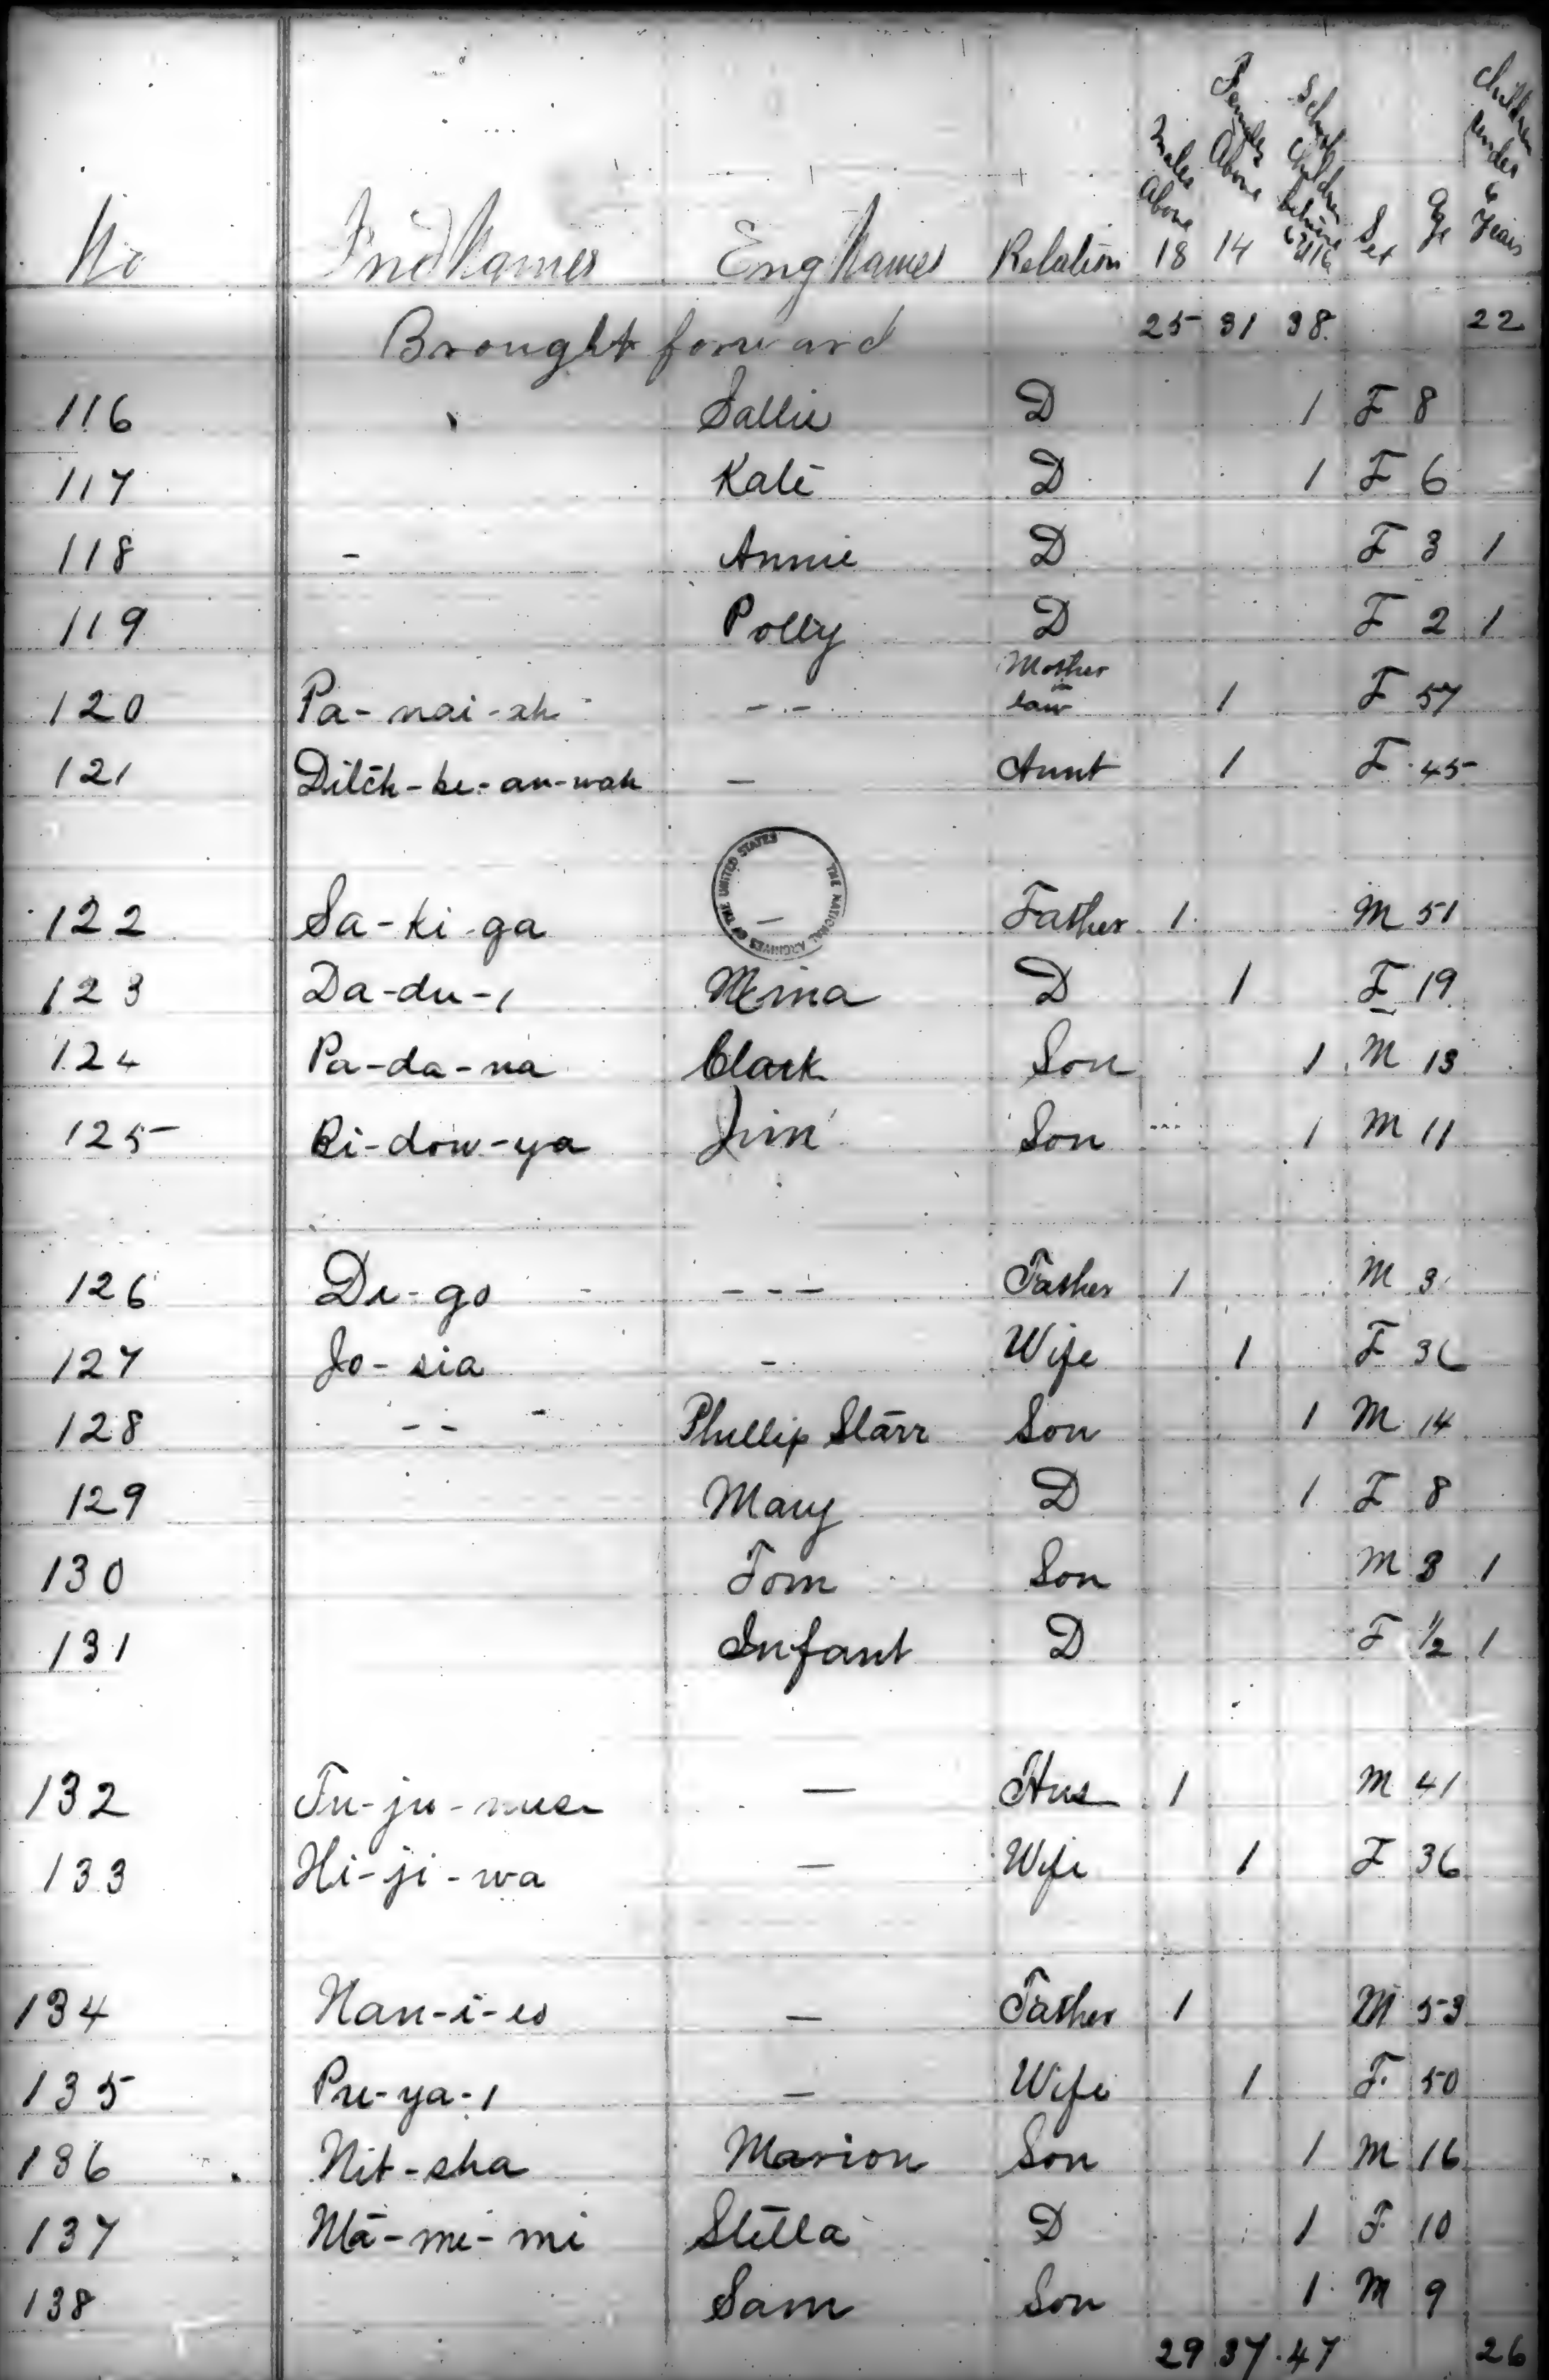 No Ind Names Eng Names Relation Males Above 18 Females Above 14 School Children between 6 & 16 Sex Age Children under 6 Years
Brought forward 25 31 38 22
116 Sallie D 1 F 8
117 Kate D 1 F 6
118 - Annie D F 3 1
119 Polly D F 2 1
120 Pa-nai-ah - - Mother in law 1 F 57
121 Ditch-ke-an-wah - Aunt 1 F 45
THE NATIONAL ARCHIVES OF THE UNITED STATES
122 Sa-ki-ga - Father 1 M 51
123 Da-du-i Mina D 1 F 19
124 Pa-da-na Clark Son 1 M 13
125 Bi-dow-ya Jim Son 1 M 11
126 De-go - - - Father 1 M 3
127 Jo-sia - Wife 1 F 36
128 - - - Phillip Starr Son 1 M 14
129 Mary D 1 F 8
130 Tom Son M 3 1
131 Infant D F 1/2 1
132 Tu-ju- — Hus 1 M 41
133 Hi-ji-wa — Wife 1 F 36
134 Nan-i-es — Father 1 M 53
135 Pu-ya-i — Wife 1 F 50
136 Nit-sha Marion Son 1 M 16
137 Ma-mi-mi Stella D 1 F 10
138 Sam Son 1 M 9
29 37 47 26